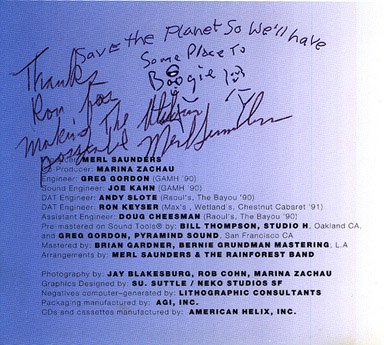 Save the Planet So We'll have
Some Place To
Boogie!
Thanks
Ron for
Making The
Possible Merl Saunders
MERL SAUNDERS
Producer: MARINA ZACHAU
Engineer: GREG GORDON (GAMH '90)
Sound Engineer: JOE KAHN (GAMH '90)
DAT Engineer: ANDY SLOTE (Raoul's, The Bayou '90)
DAT Engineer: RON KEYSER (Max's, Wetland's, Chestnut Cabaret '91)
Assistant Engineer: DOUG CHEESMAN (Raoul's, The Bayou '90)
Pre-mastered on Sound Tools® by: BILL THOMPSON, STUDIO H, Oakland CA,
and GREG GORDON, PYRAMIND SOUND, San Francisco CA
Mastered by: BRIAN GARDNER, BERNIE GRUNDMAN MASTERING, L.A
Arrangements by: MERL SAUNDERS & THE RAINFOREST BAND
Photography by: JAY BLAKESBURG, ROB COHN, MARINA ZACHAU
Graphics Designed by: SU. SUTTLE / NEKO STUDIOS SF
Negatives computer-generated by: LITHOGRAPHIC CONSULTANTS
Packaging manufactured by: AGI, INC.
CDs and cassettes manufactured by: AMERICAN HELIX, INC.